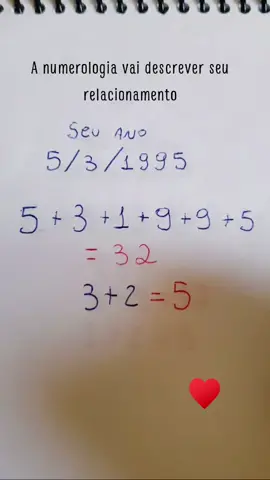 A numerologia vai descrever seu
relacionamento
SEU ANO
5/3/1995
5+3+1+9+9+5
=32
3+2=5